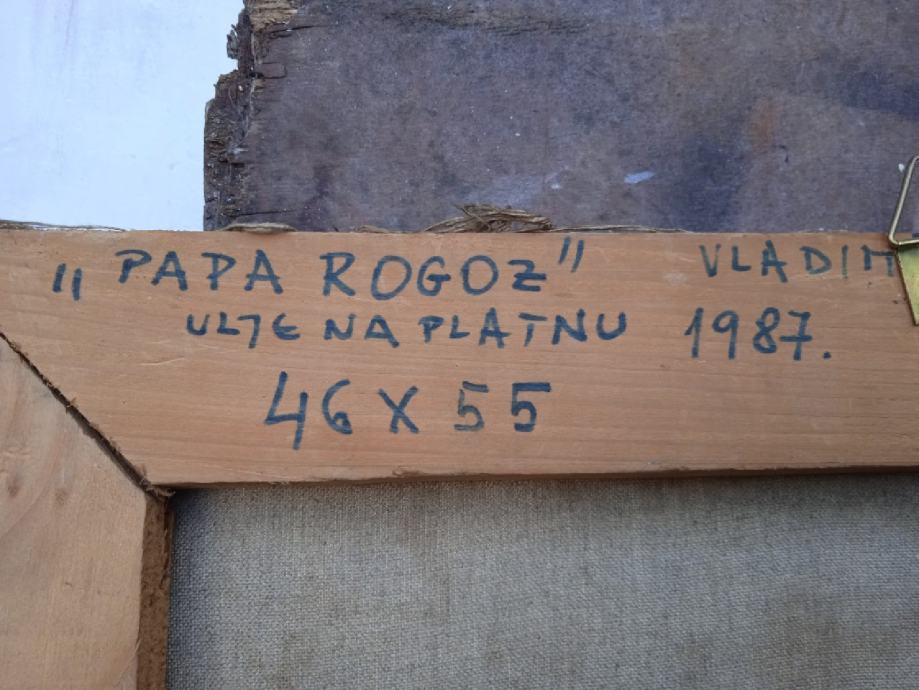 „PAPA ROGOZ" VLADIM
ULJE NA PLATNU 1987.
46 X 55